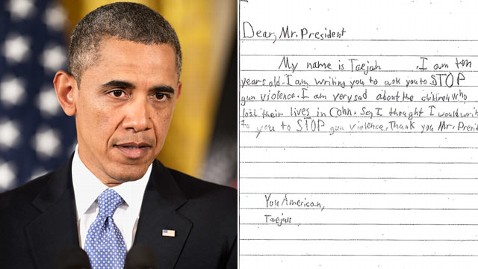 Dear, Mr. President
My name is Taejah . I am ten
years old. I am writing you to ask you to STOP
gun violence. I am very sad about the children who
lost their lives in Conn. So, I thought I would write
to you to STOP gun violence. Thank you Mr. Presi
Your American,
Taejah